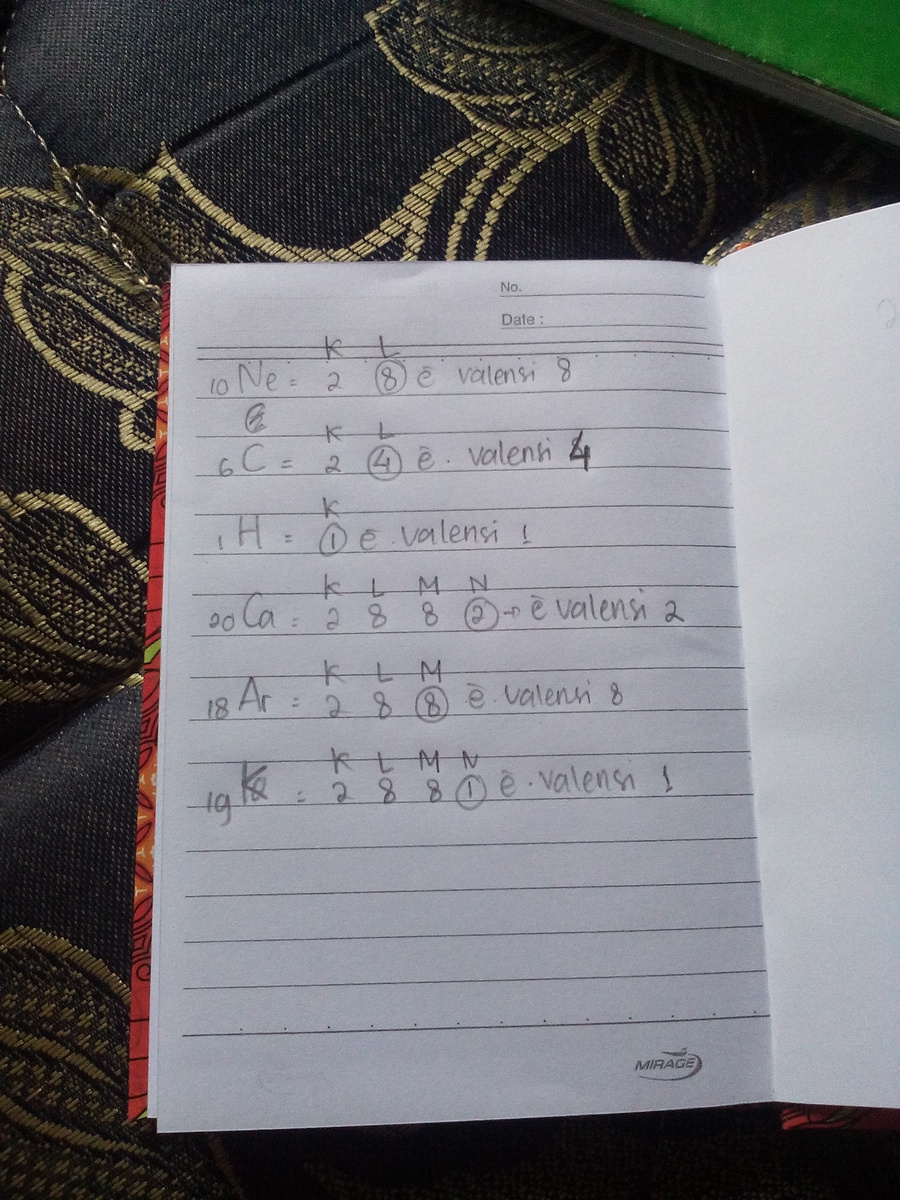 No.
Date :
K L
10 Ne = 2 8 ē valensi 8
K L
6 C = 2 4 ē . valensi 4
K
1 H = 1 ē . valensi 1
K L M N
20 Ca = 2 8 8 2 → ē valensi 2
K L M
18 Ar = 2 8 8 ē . valensi 8
K L M N
19 K = 2 8 8 1 ē . valensi 1
MIRAGE